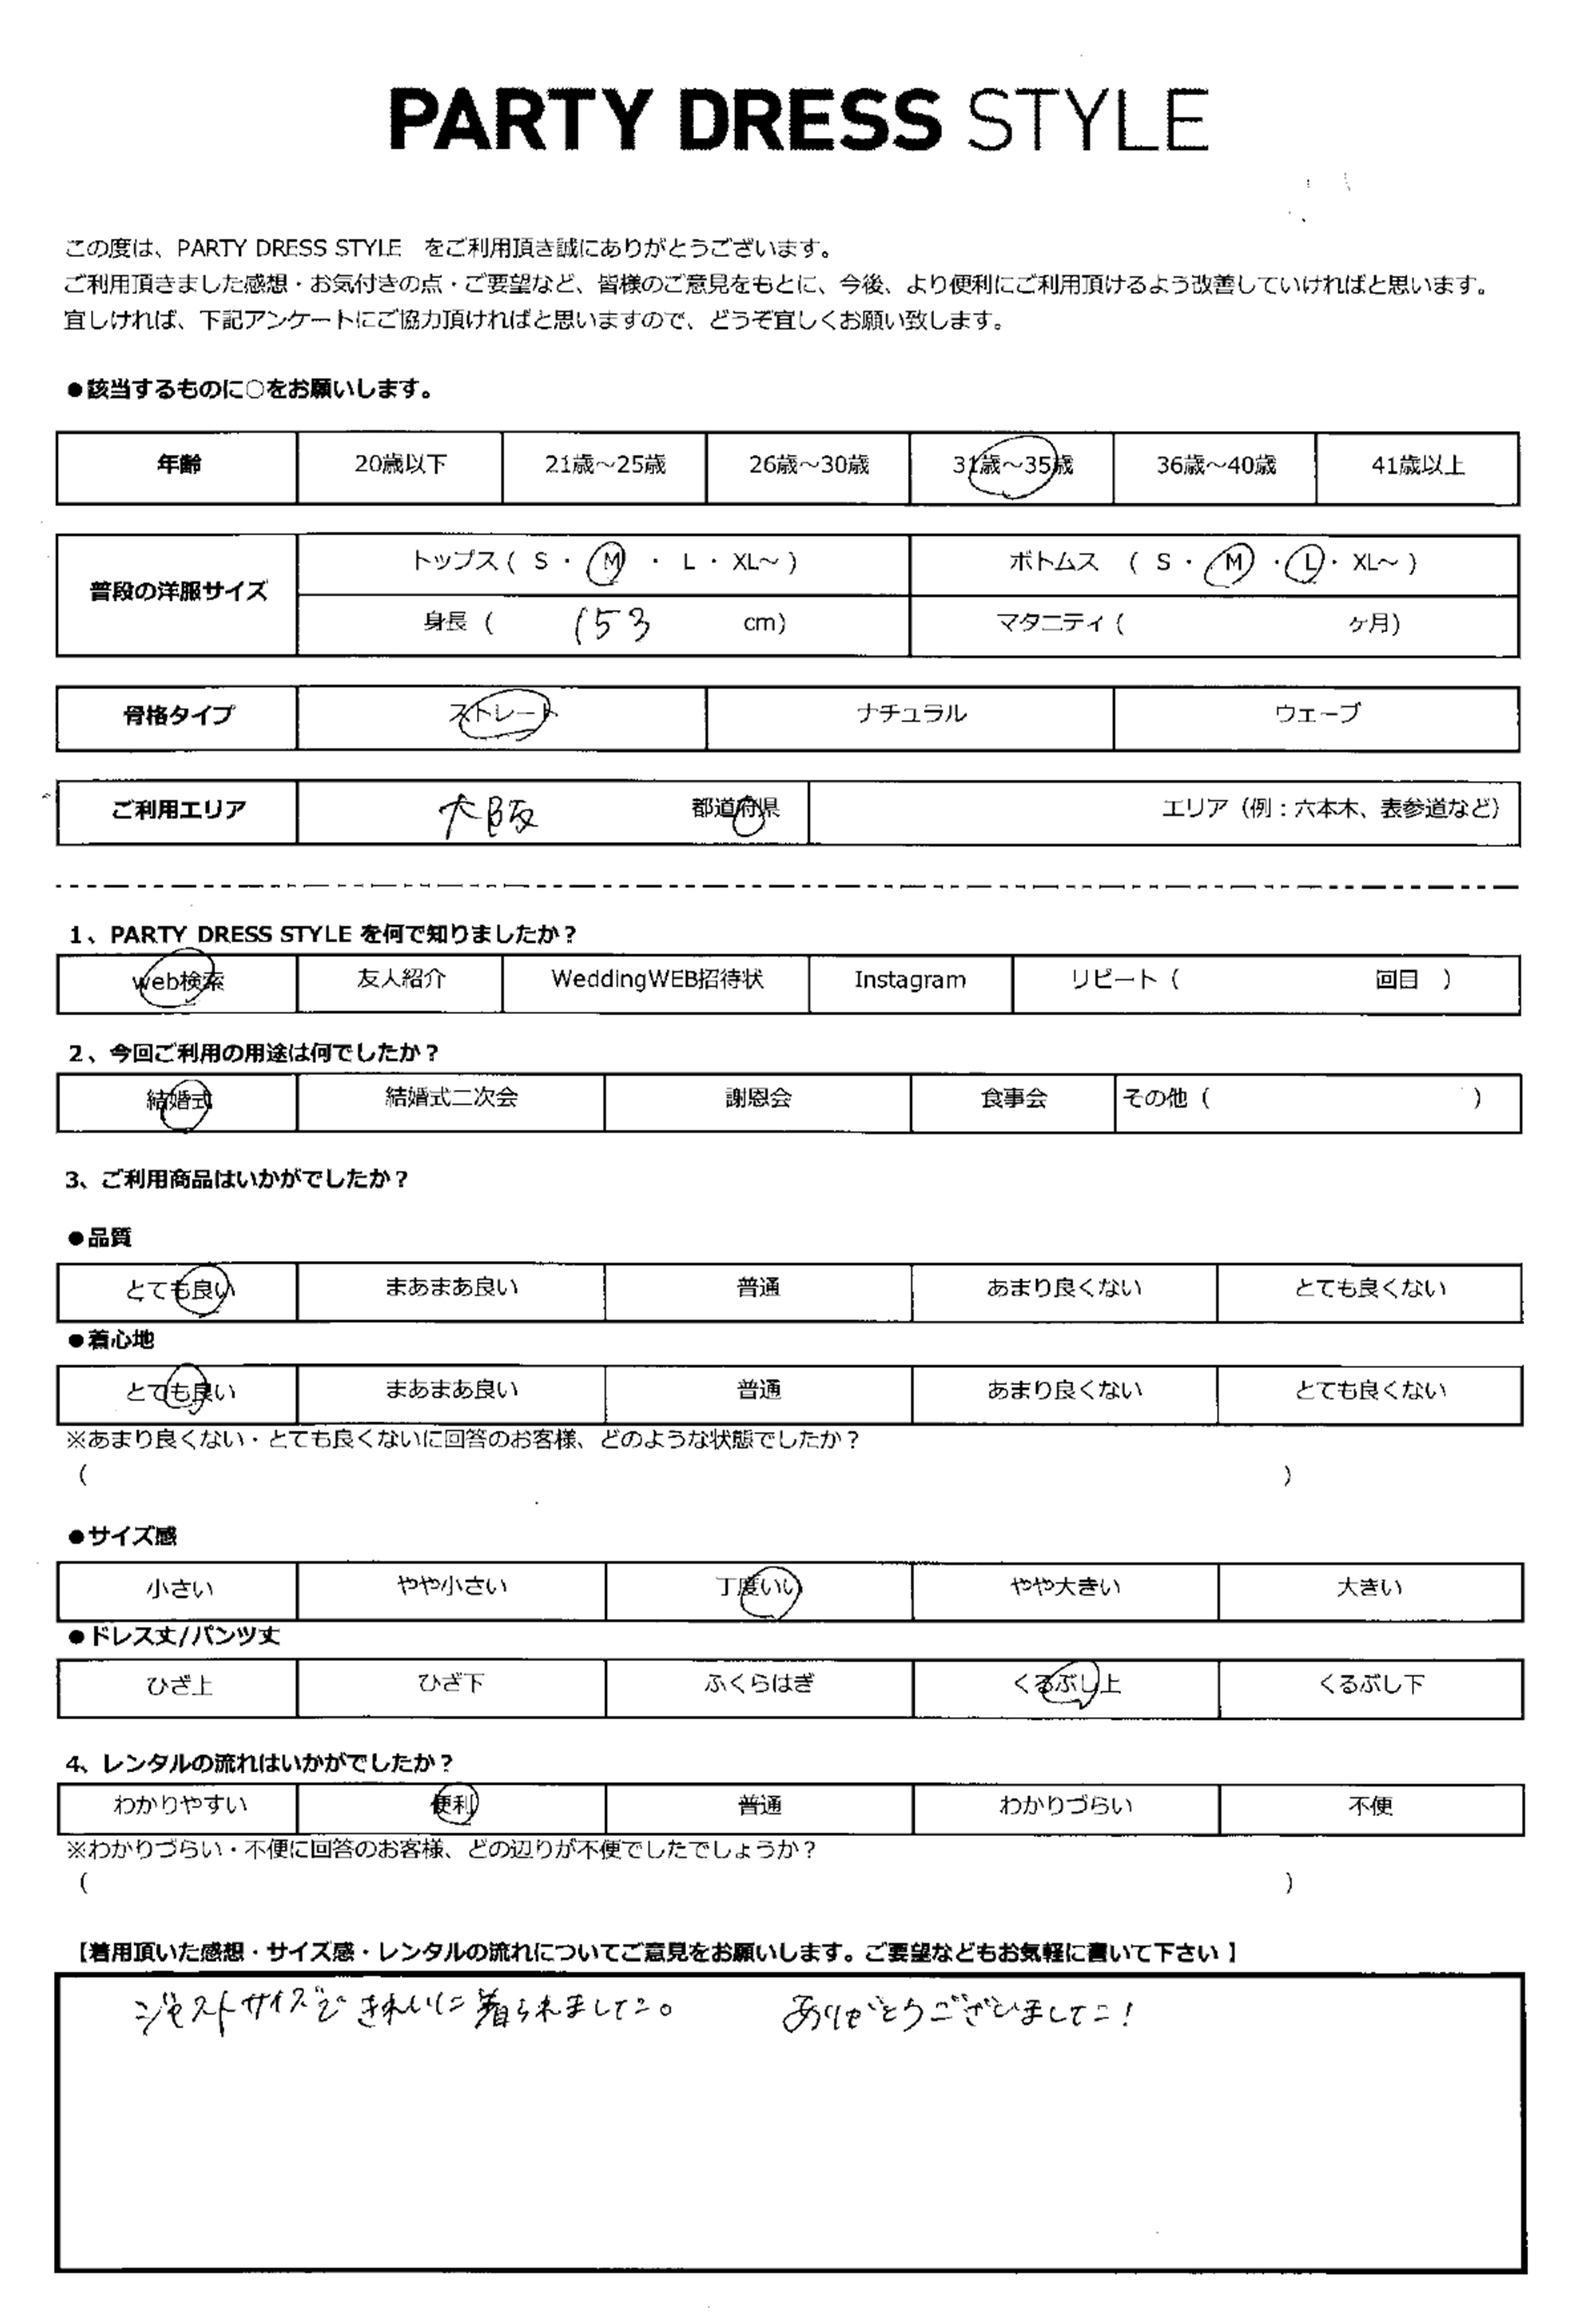 PARTY DRESS STYLE
この度は、PARTY DRESS STYLE をご利用頂き誠にありがとうございます。
ご利用頂きました感想・お気付きの点・ご要望など、皆様のご意見をもとに、今後、より便利にご利用頂けるよう改善していければと思います。
宜しければ、下記アンケートにご協力頂ければと思いますので、どうぞ宜しくお願い致します。
●該当するものに○をお願いします。
年齢 20歳以下 21歳～25歳 26歳～30歳 31歳～35歳 36歳～40歳 41歳以上
普段の洋服サイズ トップス ( S ・ M ・ L ・ XL～ ) ボトムス ( S ・ M ・ L ・ XL～ )
身長 ( 153 cm) マタニティ ( ヶ月)
骨格タイプ ストレート ナチュラル ウェーブ
ご利用エリア 大阪 都道府県 エリア（例：六本木、表参道など）
1、PARTY DRESS STYLE を何で知りましたか？
web検索 友人紹介 WeddingWEB招待状 Instagram リピート ( 回目 )
2、今回ご利用の用途は何でしたか？
結婚式 結婚式二次会 謝恩会 食事会 その他 ( )
3、ご利用商品はいかがでしたか？
●品質
とても良い まあまあ良い 普通 あまり良くない とても良くない
●着心地
とても良い まあまあ良い 普通 あまり良くない とても良くない
※あまり良くない・とても良くないに回答のお客様、どのような状態でしたか？
( )
●サイズ感
小さい やや小さい 丁度いい やや大きい 大きい
●ドレス丈/パンツ丈
ひざ上 ひざ下 ふくらはぎ くるぶし上 くるぶし下
4、レンタルの流れはいかがでしたか？
わかりやすい 便利 普通 わかりづらい 不便
※わかりづらい・不便に回答のお客様、どの辺りが不便でしたでしょうか？
( )
【着用頂いた感想・サイズ感・レンタルの流れについてご意見をお願いします。ご要望などもお気軽に書いて下さい】
ジャストサイズで きれいに 着られました。 ありがとうございました！